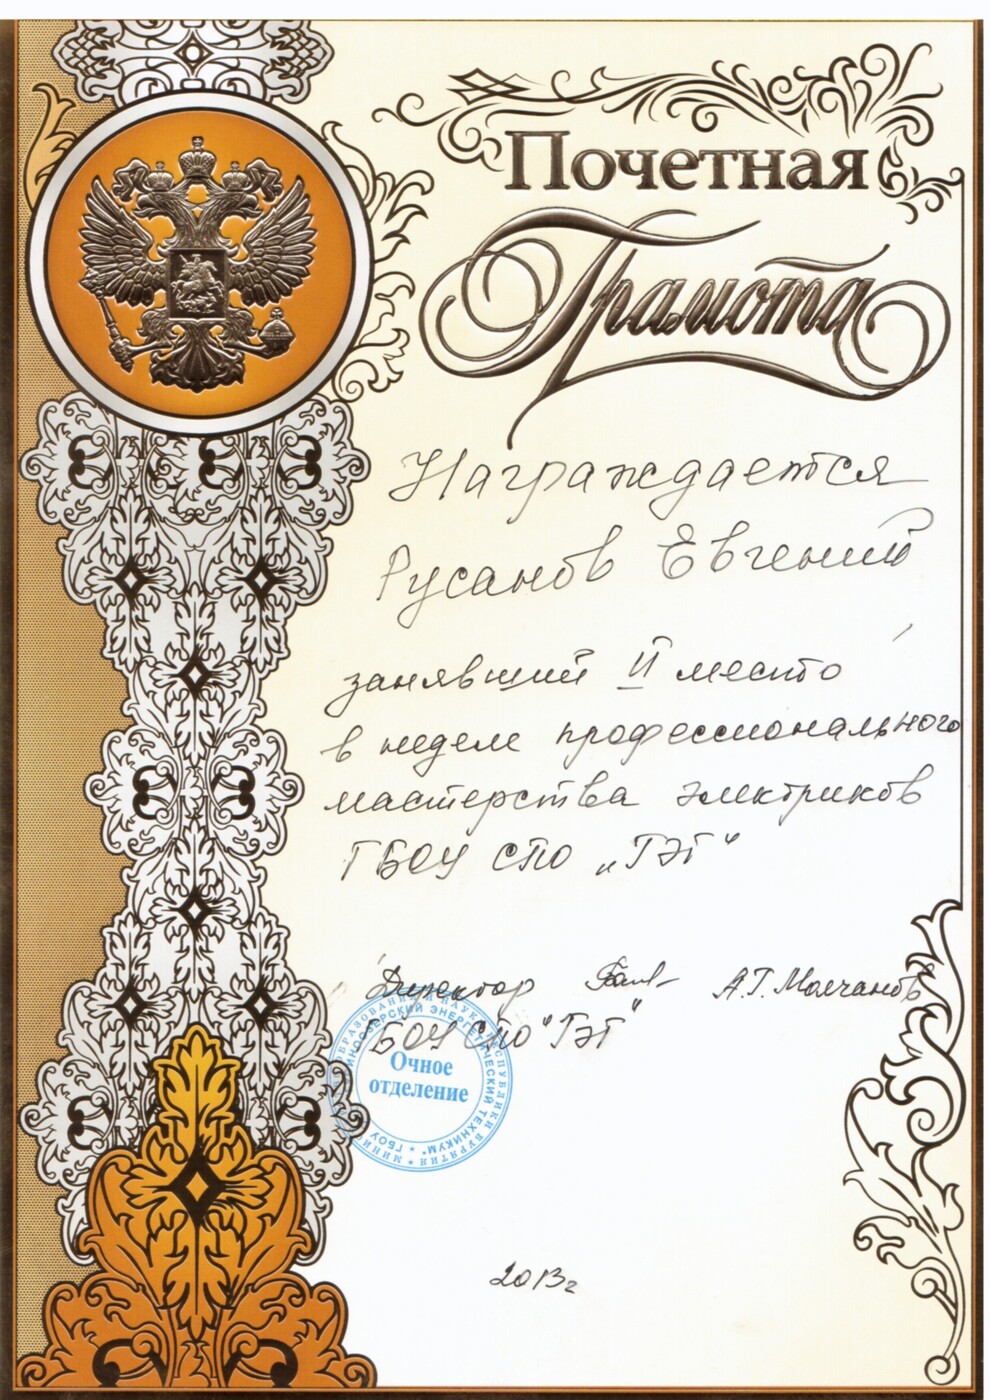 Почетная
Грамота
Награждается
Русанов Евгений
занявший II место
в неделе профессионального
мастерства электриков
ГБОУ СПО „ГЭТ“
Директор А.Г. Молчанов
ГБОУ СПО "ГЭТ"
Очное
отделение
ЭНЕРГЕТИЧЕСКИЙ ТЕХНИКУМ" * ГБОУ
РЕСПУБЛИКИ БУРЯТИЯ *
2013г